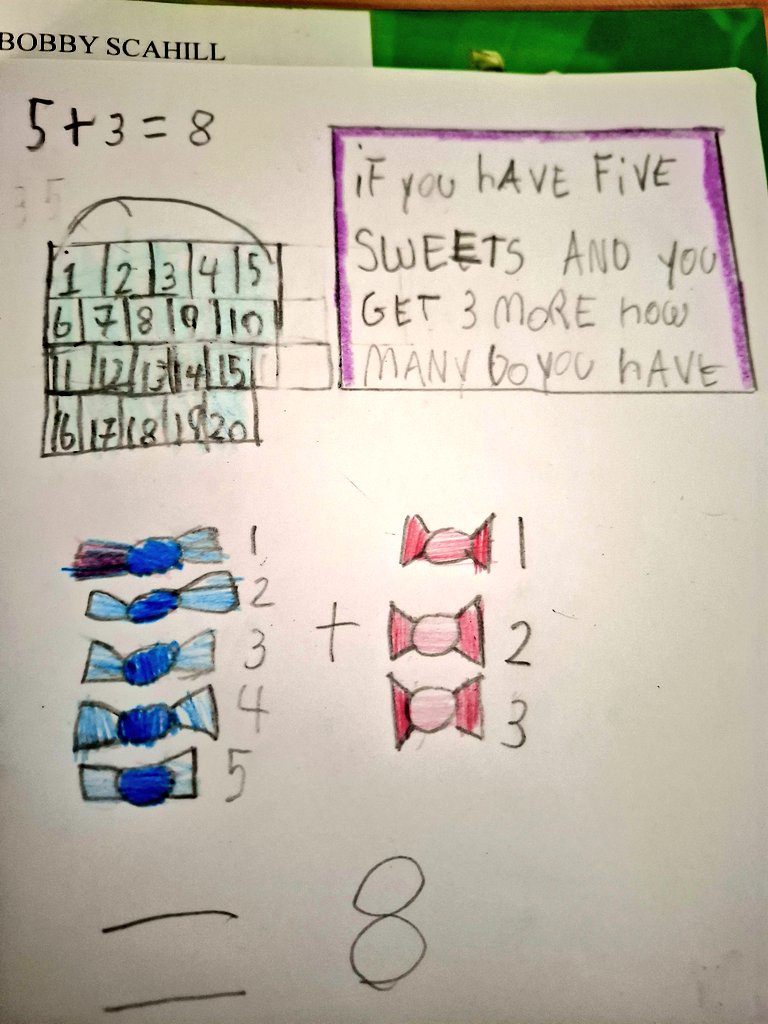 BOBBY SCAHILL
5+3=8
iF you hAVE FiVE
SWEETS AND you
GET 3 MoRE how
MANY Do you hAVE
1 2 3 4 5
6 7 8 9 10
11 12 13 14 15
16 17 18 19 20
1 1
2 + 2
3 3
4
5
= 8